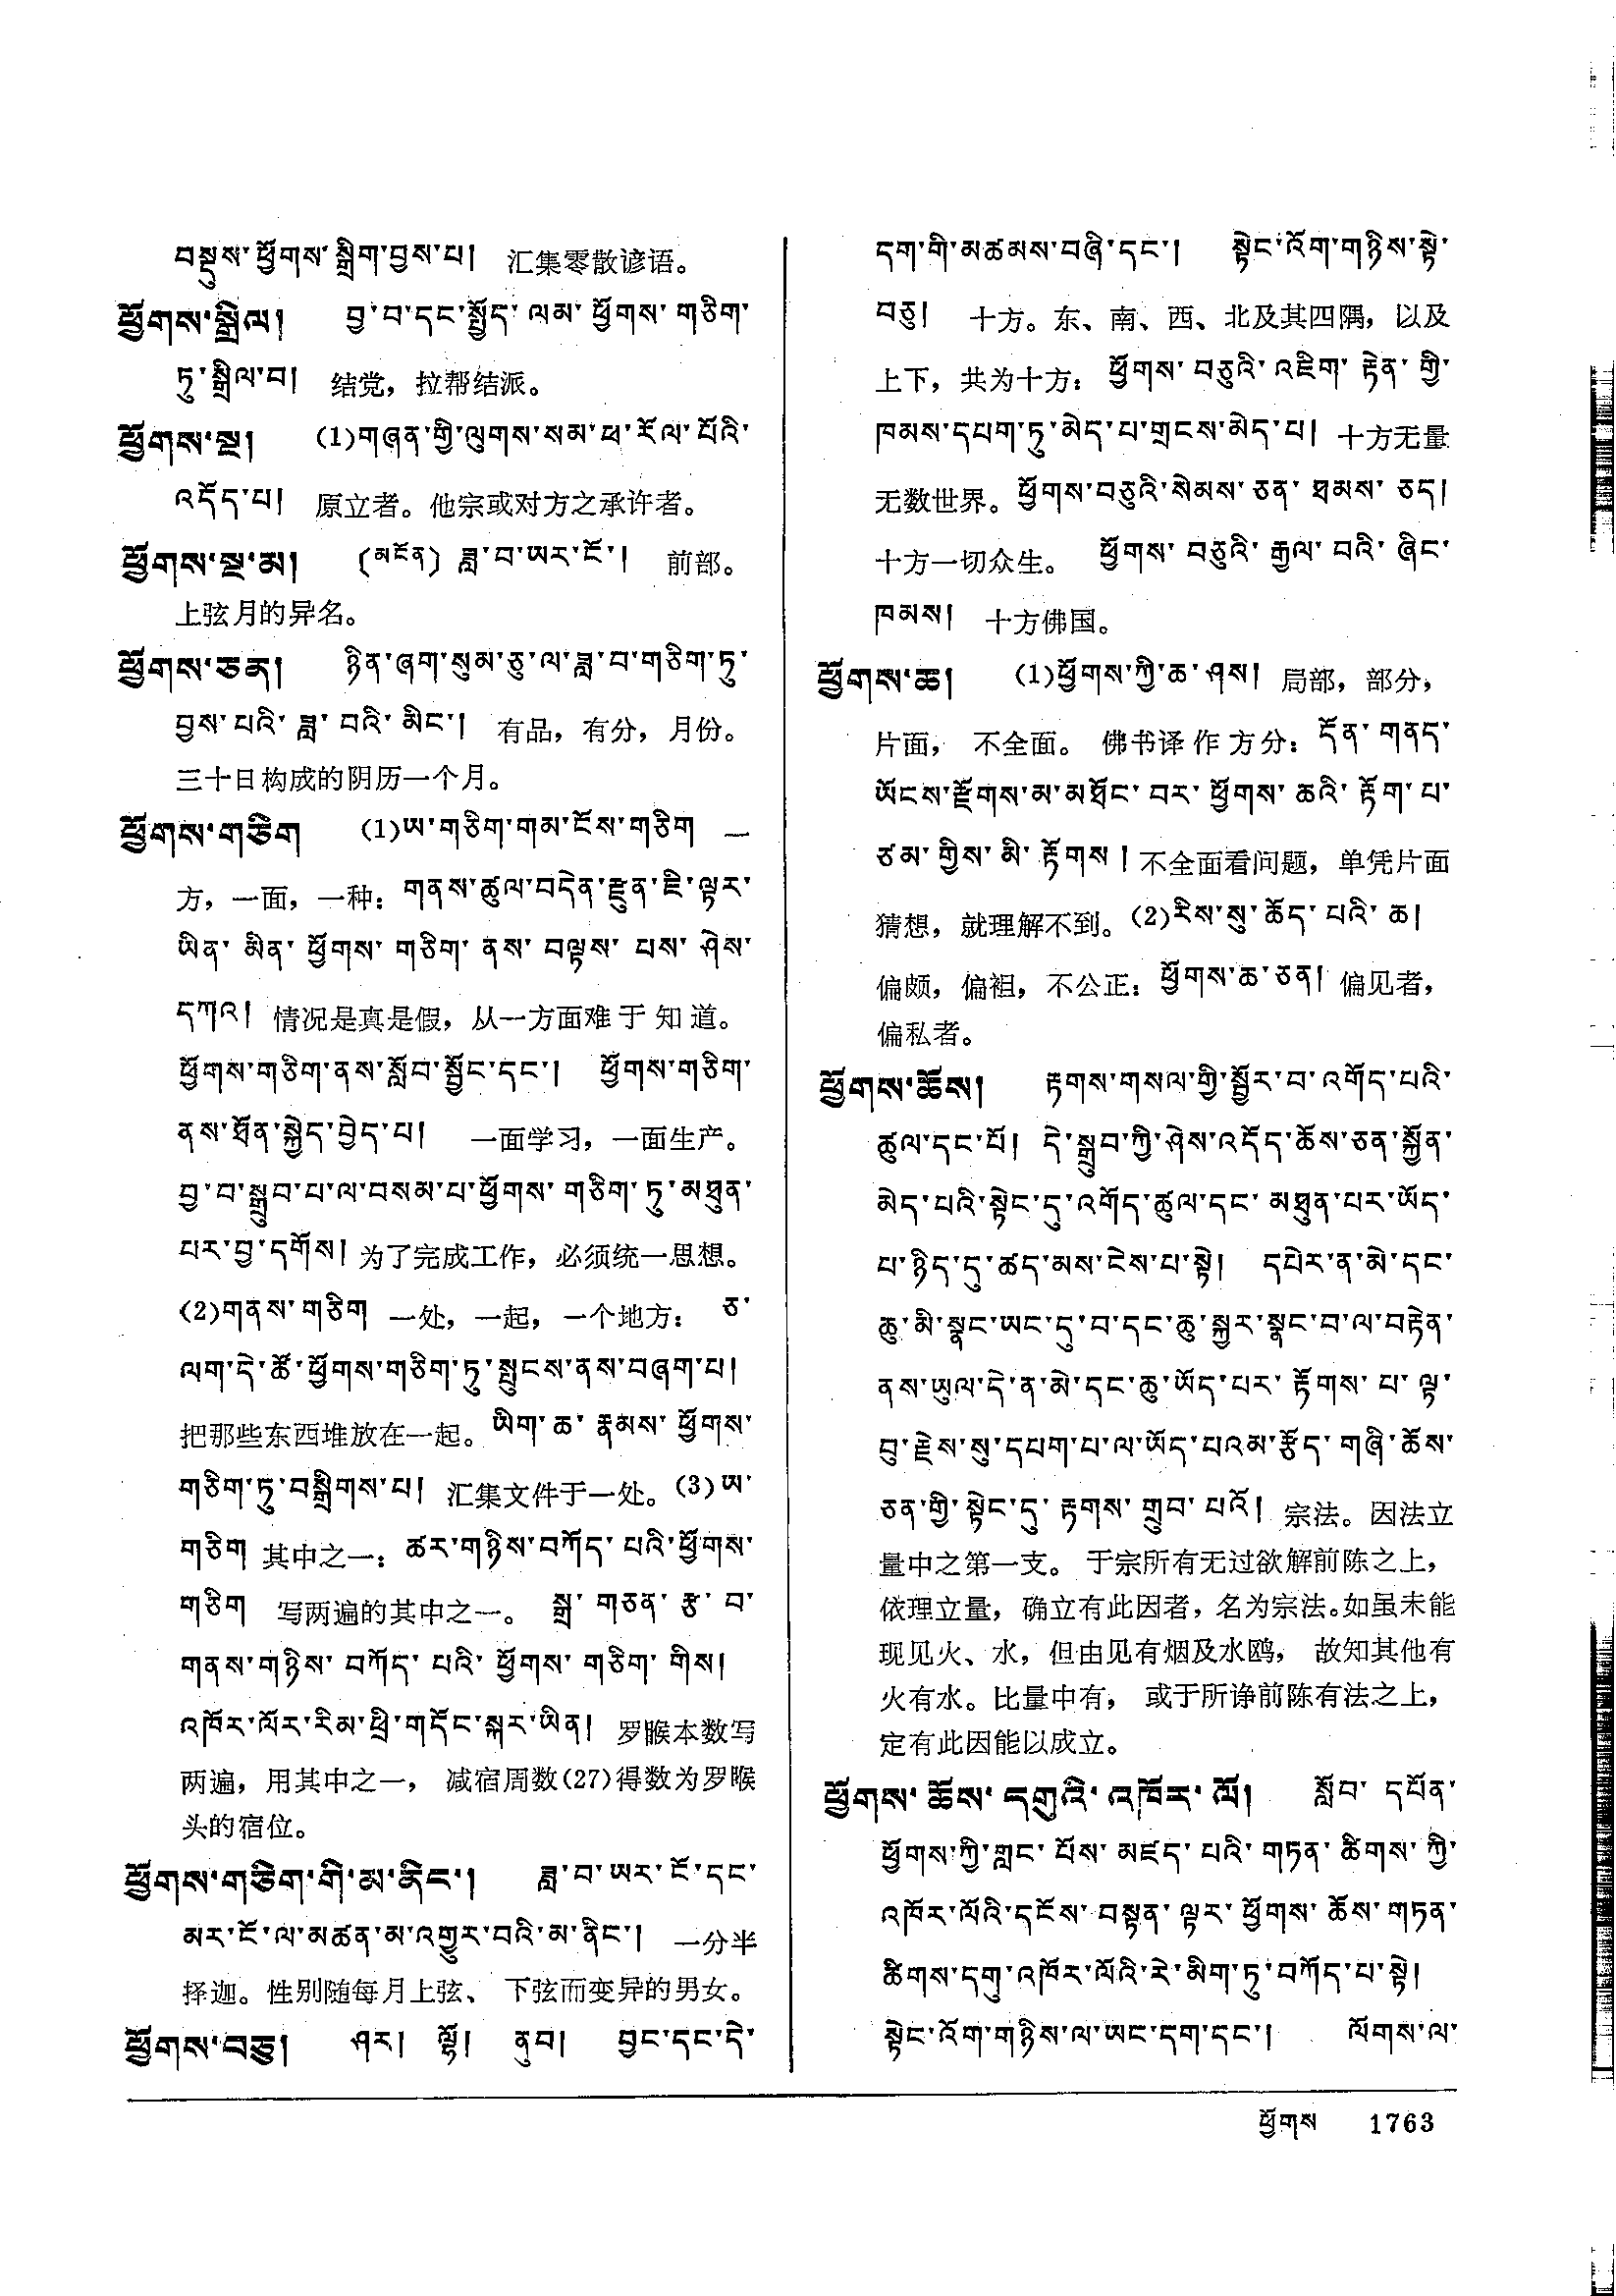 བསྡུས་ཕྱོགས་སྒྲིག་བྱས་པ། 汇集零散谚语。
ཕྱོགས་སྒྲིལ། བྱ་བ་དང་སྤྱོད་ལམ་ཕྱོགས་གཅིག་
ཏུ་སྒྲིལ་བ། 结党，拉帮结派。
ཕྱོགས་སྔ། (1)གཞན་གྱི་ལུགས་སམ་ཕ་རོལ་པོའི་
འདོད་པ། 原立者。他宗或对方之承许者。
ཕྱོགས་སྔ་མ། (མངོན) ཟླ་བ་ཡར་ངོ་། 前部。
上弦月的异名。
ཕྱོགས་ཅན། ཉིན་ཞག་སུམ་ཅུ་ལ་ཟླ་བ་གཅིག་ཏུ་
བྱས་པའི་ཟླ་བའི་མིང་། 有品，有分，月份。
三十日构成的阴历一个月。
ཕྱོགས་གཅིག (1)ཨ་གཅིག་གམ་ངོས་གཅིག 一
方，一面，一种：གནས་ཚུལ་བདེན་རྫུན་ཇི་ལྟར་
ཡིན་མིན་ཕྱོགས་གཅིག་ནས་བལྟས་པས་ཤེས་
དཀའ། 情况是真是假，从一方面难于知道。
ཕྱོགས་གཅིག་ནས་སློབ་སྦྱོང་དང་། ཕྱོགས་གཅིག་
ནས་ཐོན་སྐྱེད་བྱེད་པ། 一面学习，一面生产。
བྱ་བ་སྒྲུབ་པ་ལ་བསམ་པ་ཕྱོགས་གཅིག་ཏུ་མཐུན་
པར་བྱ་དགོས། 为了完成工作，必须统一思想。
(2)གནས་གཅིག 一处，一起，一个地方： ཅ་
ལག་དེ་ཚོ་ཕྱོགས་གཅིག་ཏུ་སྤུངས་ནས་བཞག་པ།
把那些东西堆放在一起。ཡིག་ཆ་རྣམས་ཕྱོགས་
གཅིག་ཏུ་བསྒྲིགས་པ། 汇集文件于一处。(3)ཨ་
གཅིག 其中之一：ཚར་གཉིས་བཀོད་པའི་ཕྱོགས་
གཅིག 写两遍的其中之一。 སྒྲ་གཅན་རྩ་བ་
གནས་གཉིས་བཀོད་པའི་ཕྱོགས་གཅིག་གིས།
འཁོར་ལོར་རིམ་ཕྲི་གདོང་སྐར་ཡིན། 罗睺本数写
两遍，用其中之一，减宿周数(27)得数为罗睺
头的宿位。
ཕྱོགས་གཅིག་གི་མ་ནིང་། ཟླ་བ་ཡར་ངོ་དང་
མར་ངོ་ལ་མཚན་མ་འགྱུར་བའི་མ་ནིང་། 一分半
择迦。性别随每月上弦、下弦而变异的男女。
ཕྱོགས་བཅུ། ཤར། ལྷོ། ནུབ། བྱང་དང་དེ་
དག་གི་མཚམས་བཞི་དང་། སྟེང་འོག་གཉིས་སྟེ་
བཅུ། 十方。东、南、西、北及其四隅，以及
上下，共为十方：ཕྱོགས་བཅུའི་འཇིག་རྟེན་གྱི་
ཁམས་དཔག་ཏུ་མེད་པ་གྲངས་མེད་པ། 十方无量
无数世界。ཕྱོགས་བཅུའི་སེམས་ཅན་ཐམས་ཅད།
十方一切众生。 ཕྱོགས་བཅུའི་རྒྱལ་བའི་ཞིང་
ཁམས། 十方佛国。
ཕྱོགས་ཆ། (1)ཕྱོགས་ཀྱི་ཆ་ཤས། 局部，部分，
片面，不全面。佛书译作方分：དོན་གནད་
ཡོངས་རྫོགས་མ་མཐོང་བར་ཕྱོགས་ཆའི་རྟོག་པ་
ཙམ་གྱིས་མི་རྟོགས། 不全面看问题，单凭片面
猜想，就理解不到。(2)རིས་སུ་ཆོད་པའི་ཆ།
偏颇，偏袒，不公正：ཕྱོགས་ཆ་ཅན། 偏见者，
偏私者。
ཕྱོགས་ཆོས། རྟགས་གསལ་གྱི་སྦྱོར་བ་འགོད་པའི་
ཚུལ་དང་པོ། དེ་སྒྲུབ་ཀྱི་ཤེས་འདོད་ཆོས་ཅན་སྐྱོན་
མེད་པའི་སྟེང་དུ་འགོད་ཚུལ་དང་མཐུན་པར་ཡོད་
པ་ཉིད་དུ་ཚད་མས་ངེས་པ་སྟེ། དཔེར་ན་མེ་དང་
ཆུ་མི་སྣང་ཡང་དུ་བ་དང་ཆུ་སྐྱར་སྣང་བ་ལ་བརྟེན་
ནས་ཡུལ་དེ་ན་མེ་དང་ཆུ་ཡོད་པར་རྟོགས་པ་ལྟ་
བུ་རྗེས་སུ་དཔག་པ་ལ་ཡོད་པའམ་རྩོད་གཞི་ཆོས་
ཅན་གྱི་སྟེང་དུ་རྟགས་གྲུབ་པའོ། 宗法。因法立
量中之第一支。于宗所有无过欲解前陈之上，
依理立量，确立有此因者，名为宗法。如虽未能
现见火、水，但由见有烟及水鸥，故知其他有
火有水。比量中有，或于所诤前陈有法之上，
定有此因能以成立。
ཕྱོགས་ཆོས་དགུའི་འཁོར་ལོ། སློབ་དཔོན་
ཕྱོགས་ཀྱི་གླང་པོས་མཛད་པའི་གཏན་ཚིགས་ཀྱི་
འཁོར་ལོའི་དངོས་བསྟན་ལྟར་ཕྱོགས་ཆོས་གཏན་
ཚིགས་དགུ་འཁོར་ལོའི་རེ་མིག་ཏུ་བཀོད་པ་སྟེ།
སྟེང་འོག་གཉིས་ལ་ཡང་དག་དང་། ལོགས་ལ་
ཕྱོགས 1763